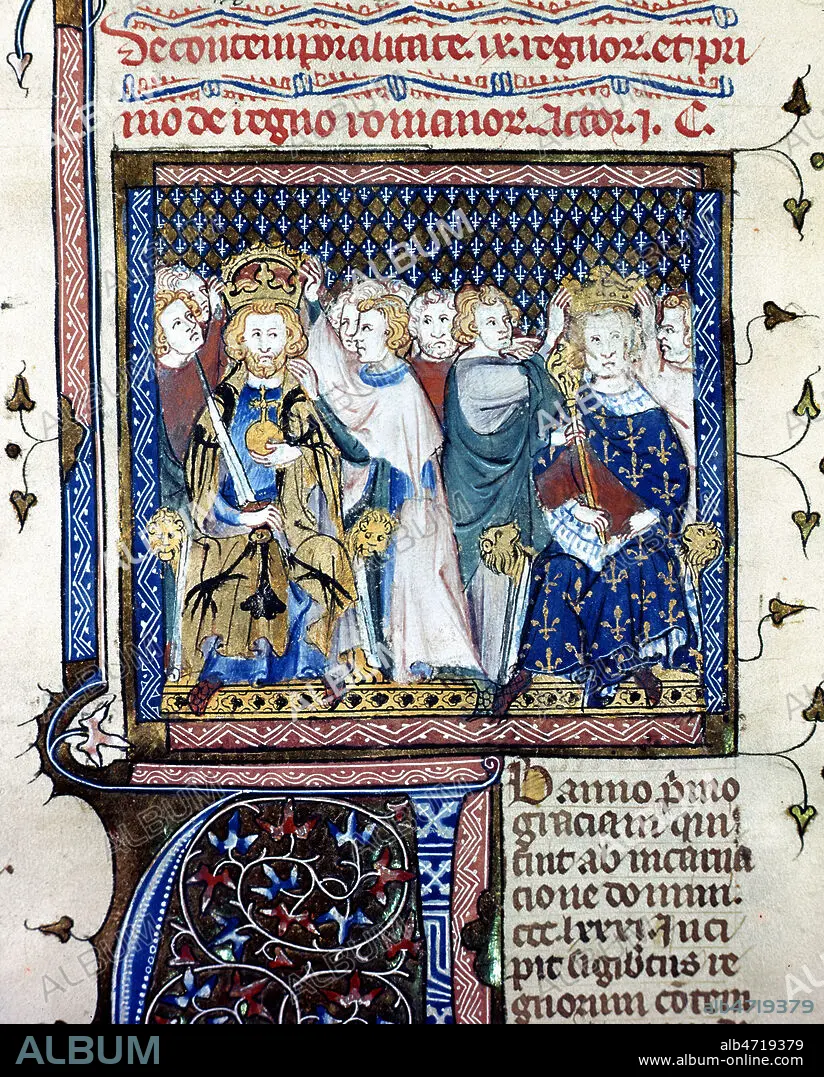 De contemporalitate. ix. regnor. et pri
mo de regno romanor. Actor. j. C.
B anno p̄mo
graciani qui
fuit ab incarna
cione domini.
ccc. lxxxi. Inci
pit sigib'tus re
gnorum cōtem
ALBUM
alb4719379
alb4719379
www.album-online.com